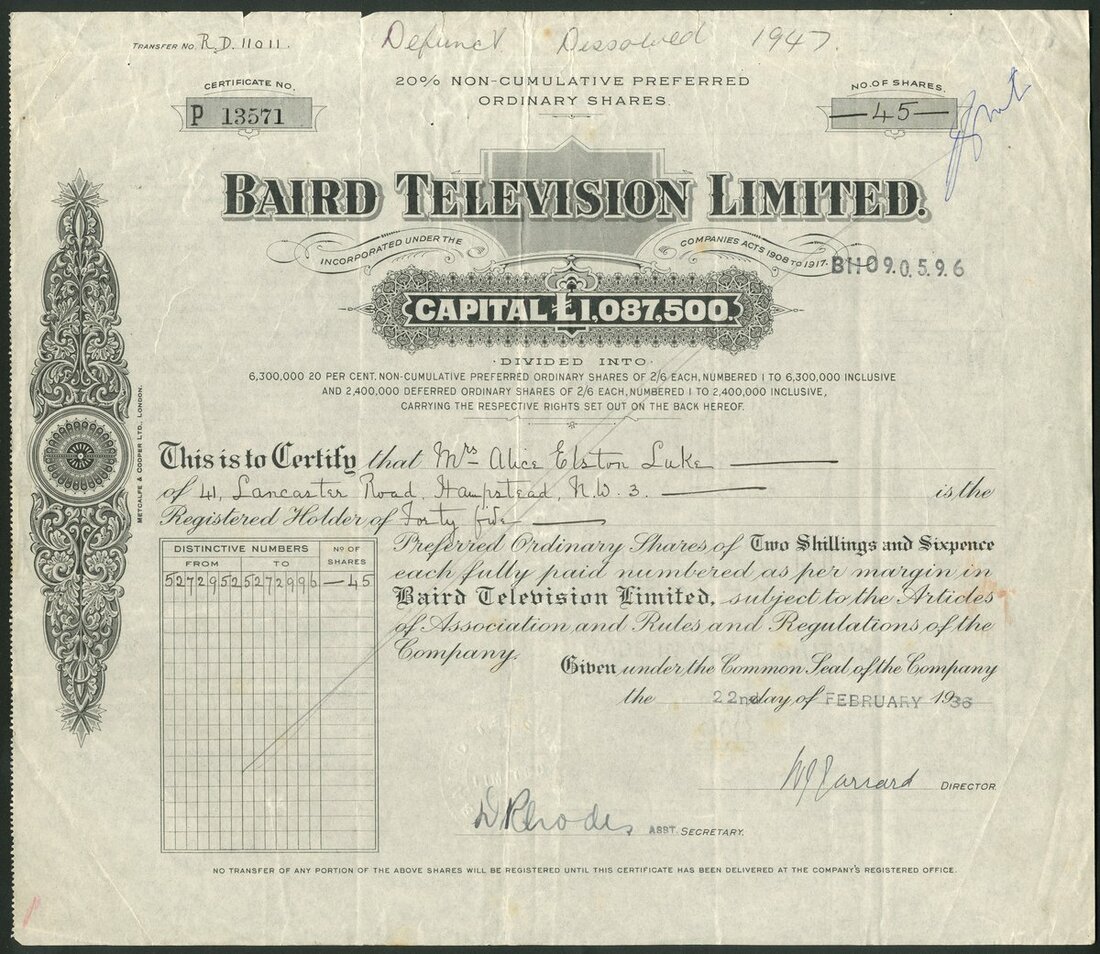 TRANSFER NO. R.D. 11011.
Defunct Dissolved 1947.
CERTIFICATE NO.
P 13571
20% NON-CUMULATIVE PREFERRED
ORDINARY SHARES.
NO. OF SHARES.
—45—
BAIRD TELEVISION LIMITED.
INCORPORATED UNDER THE COMPANIES ACTS 1908 TO 1917.
B1109.0.5.9.6
CAPITAL £1,087,500.
DIVIDED INTO
6,300,000 20 PER CENT. NON-CUMULATIVE PREFERRED ORDINARY SHARES OF 2/6 EACH, NUMBERED 1 TO 6,300,000 INCLUSIVE
AND 2,400,000 DEFERRED ORDINARY SHARES OF 2/6 EACH, NUMBERED 1 TO 2,400,000 INCLUSIVE,
CARRYING THE RESPECTIVE RIGHTS SET OUT ON THE BACK HEREOF.
METCALFE & COOPER LTD., LONDON.
This is to Certify that Mrs Alice Elston Luke
of 41, Lancaster Road, Hampstead, N.W. 3. is the
Registered Holder of Forty five
Preferred Ordinary Shares of Two Shillings and Sixpence
each fully paid numbered as per margin in
Baird Television Limited, subject to the Articles
of Association and Rules and Regulations of the
Company.
DISTINCTIVE NUMBERS
FROM TO
No OF SHARES
5272952 5272996 —45
Given under the Common Seal of the Company
the 22nd day of FEBRUARY 1936
W J Jarrard DIRECTOR
D Rhodes ASST. SECRETARY.
NO TRANSFER OF ANY PORTION OF THE ABOVE SHARES WILL BE REGISTERED UNTIL THIS CERTIFICATE HAS BEEN DELIVERED AT THE COMPANY'S REGISTERED OFFICE.